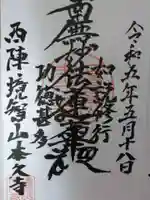 令和五年五月十八日
如説修行
南無妙法蓮華経
功徳甚多
西陣 本久寺